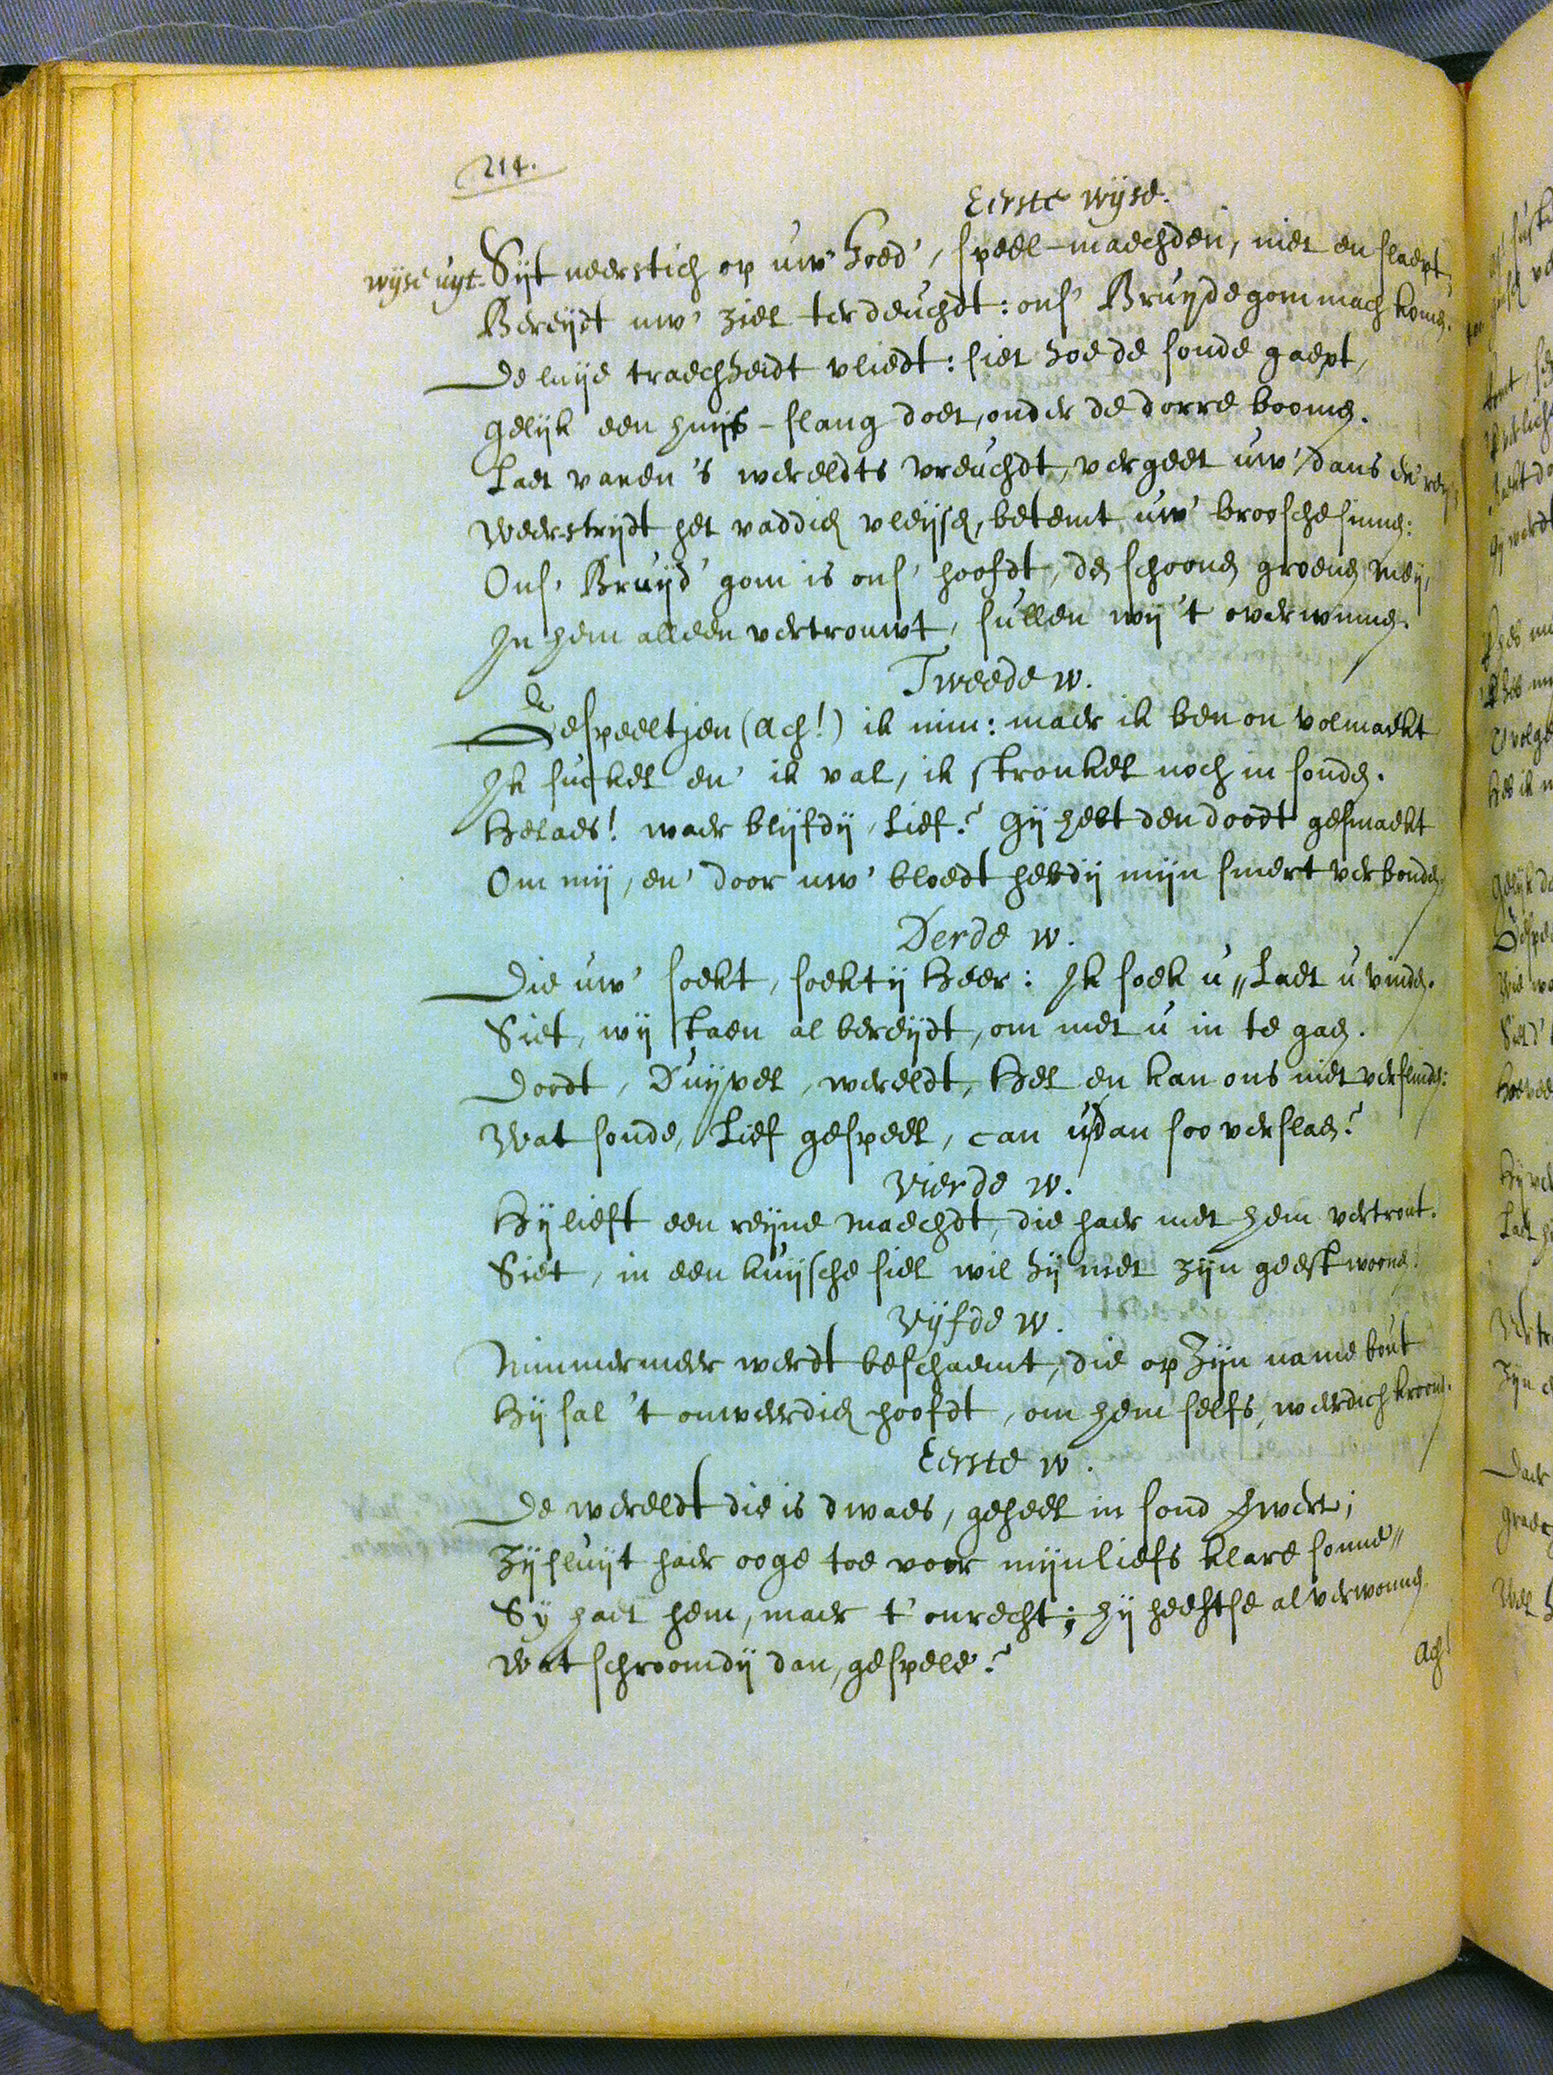 214.
Eerste wijse.
wijse uyt. Sijt neerstich op uw' hoed', speel-maechden, niet en slaept,
Bereydt uw' ziel ter deuchdt: ons' Bruydegom mach komen.
De luije traechheidt vliedt: siet hoe de sonde gaept,
Gelijk een huijs-slang doet, onder de dorre boomen.
Laet varen 's wereldts vreuchdt, vergeet uw' dans en' rey,
Weerstrijdt het vaddich vleijsch, betemt uw' broosche sinnen:
Ons' Bruijd'gom is ons' hoofdt, den schoonen groenen Meij,
In hem alleen vertrouwt, sullen wij 't overwinnen.
Tweede w.
Gespeeltjen (Ach!) ik min: maer ik ben onvolmaekt
Ik suckel en' ik val, ik stronkel noch in sonden.
Helaes! waer blijfdij, Lief? Gij hebt den doodt gesmaekt
Om mij, en' door uw' bloedt hebdij mijn smert verbonden,
Derde w.
Die uw' soekt, soektij Heer: Ik soek u, Laet u vinden.
Siet, wij staen al bereijdt, om met u in te gaen.
Doodt, Duijvel, wereldt, Hel en kan ons niet verslinden:
Wat sonde, Lief gespeel, can u dan soo verslaen?
Vierde w.
Hij lieft een reijne Maechdt, die haer met hem vertrout.
Siet, in een kuijsche siel wil hij met zijn geest woonen.
Vijfde w.
Nimmermeer werdt beschaemt, die op Zijn name bout
Hij sal 't onweerdich hoofdt, om hem selfs, weerdich kroonen.
Eerste w.
De wereldt die is dwaes, geheel in sond verwert;
Zij sluijt haer ooge toe voor mijn liefs klare sonne,,
Sy haet hem, maer t'onrecht; hij heeftse al verwonnen
Wat schroomdij dan, gespele?
Ach!